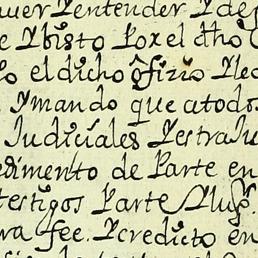 aver Y entender Y de
e Y bisto Por el dho
o el dicho ofizio Y
Y mando que a todos
Judiciales Y estra Ju
edimento de Parte en
testigos Parte Y lug.
ra fee. Y credicto en